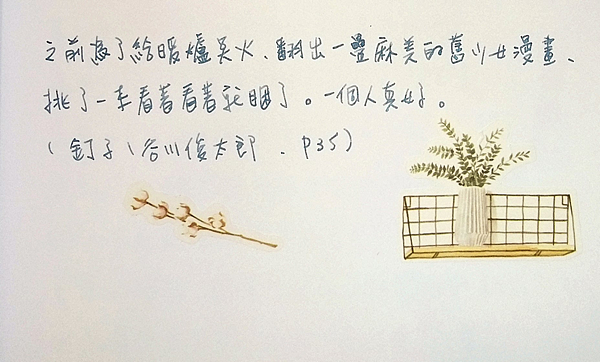 之前為了給暖爐火、翻出一疊麻美的舊少女漫畫、
挑了一本看著看著就睏了。一個人真好。
(釘子\谷川俊太郎．P35)